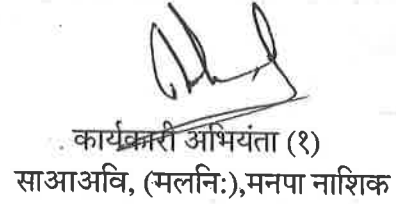 कार्यकारी अभियंता (१)
साआअवि, (मलनि:),मनपा नाशिक